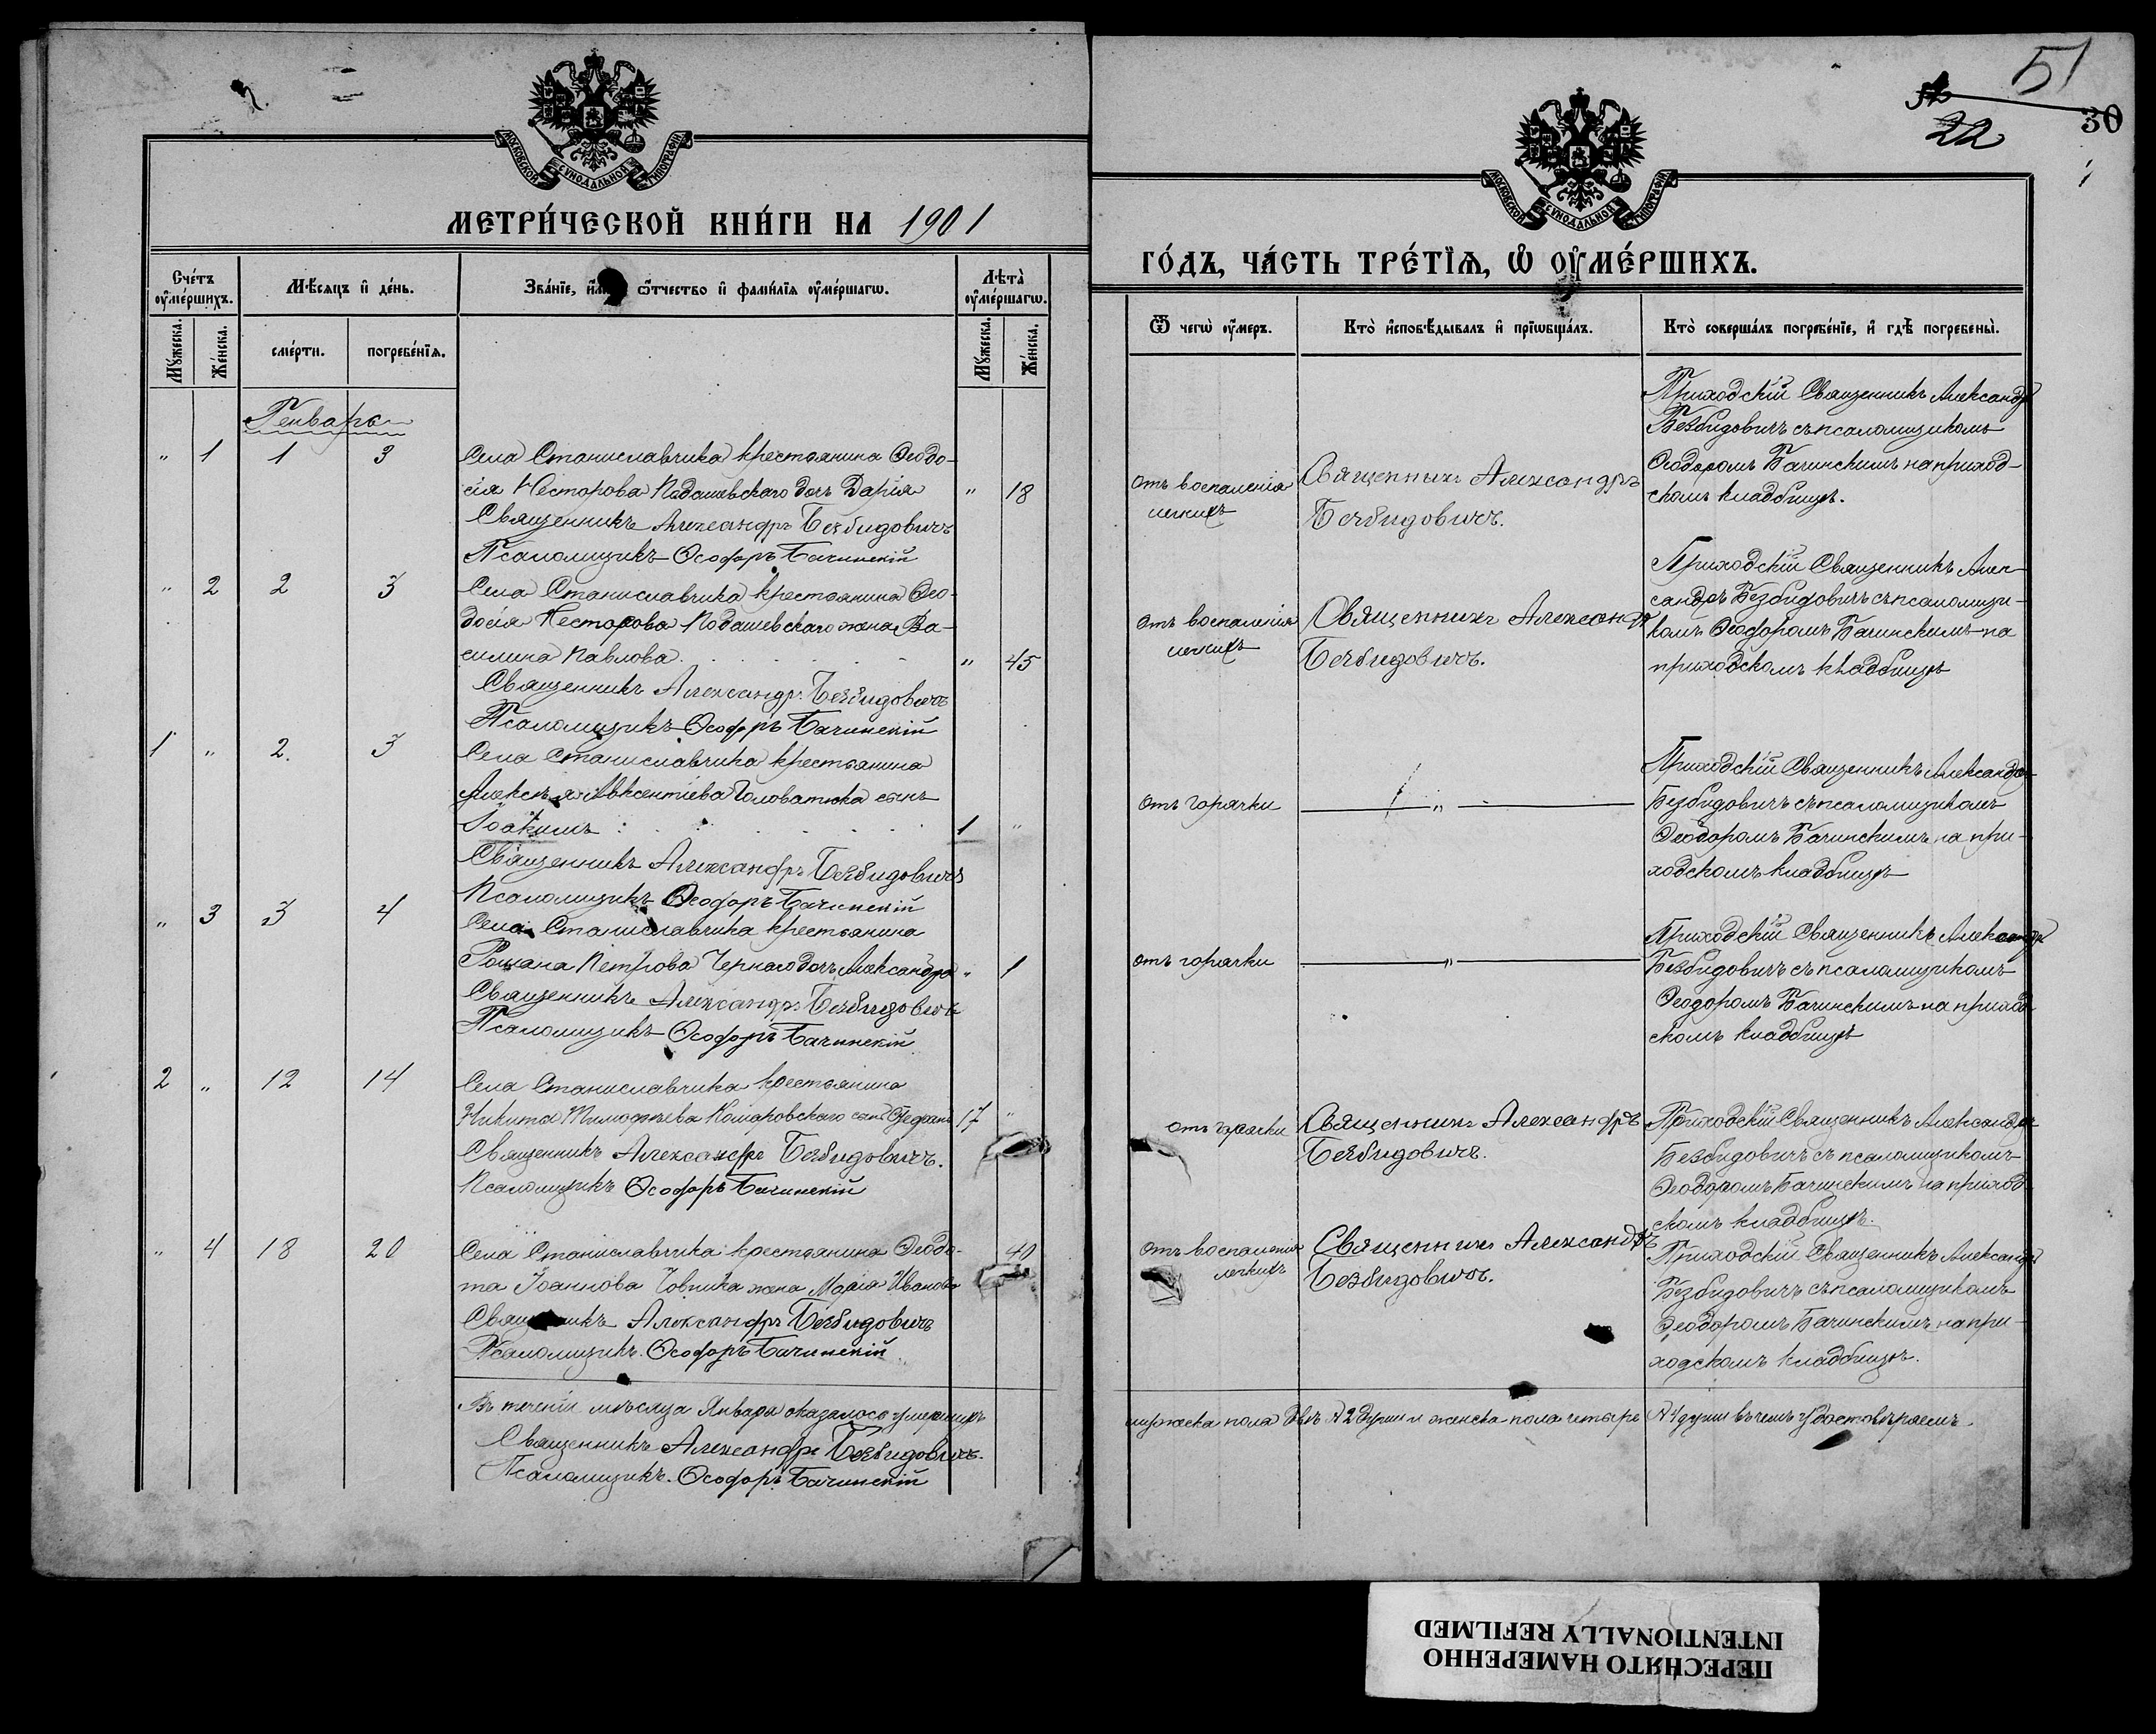 51
22
30
МОСКОВСКОЙ СѴНОДАЛЬНОЙ ТИПОГРАФІИ
МОСКОВСКОЙ СѴНОДАЛЬНОЙ ТИПОГРАФІИ
МЕТРИ́ЧЕСКОЙ КНИ́ГИ НА 1901
ГО́ДЪ, ЧА́СТЬ ТРЕ́ТІѦ, Ѡ ОУ҆МЕ́РШИХЪ.
Сче́тъ оу҆ме́ршихъ.
Мѣ́сяцъ и҆ де́нь.
Зва́нїе, и҆́мѧ ѻ҆́тчество и҆ фами́лїѧ оу҆ме́ршагѡ.
Лѣта̀ оу҆ме́ршагѡ.
Мꙋ́жеска.
Же́нска.
сме́рти.
погребе́нїѧ.
Мꙋ́жеска.
Же́нска.
Ѿ чегѡ̀ оу҆́меръ.
Кто̀ и҆сповѣ́дывалъ и҆ прїѡбща́лъ.
Кто̀ соверша́лъ погребе́нїе, и҆ гдѣ̀ погребены̀.
Генварь
" 1 1 3 Села Станиславчика крестьянина Ѳеодо-
сія Несторова Подашевскаго дочь Дарія " 18
Священникъ Александръ Безбидовичъ
Псаломщикъ Ѳеодоръ Бачинскій
отъ воспаленія
легкихъ
Священникъ Александръ
Безбидовичъ.
Приходскій Священникъ Александръ
Безбидовичъ съ псаломщикомъ
Ѳеодоромъ Бачинскимъ на приход-
скомъ кладбищѣ.
" 2 2 3 Села Станиславчика крестьянина Ѳео-
досія Несторова Подашевскаго жена Ва-
силина Павлова " 45
Священникъ Александръ Безбидовичъ
Псаломщикъ Ѳеодоръ Бачинскій
отъ воспаленія
легкихъ
Священникъ Александръ
Безбидовичъ.
Приходскій Священникъ Алек-
сандръ Безбидовичъ съ псаломщи-
комъ Ѳеодоромъ Бачинскимъ на
приходскомъ кладбищѣ
1 " 2. 3 Села Станиславчика крестьянина
Алексѣя Авксентіева Головатюка сынъ
Іоакимъ 1 "
Священникъ Александръ Безбидовичъ
Псаломщикъ Ѳеодоръ Бачинскій
отъ горячки
"
Приходскій Священникъ Александръ
Безбидовичъ съ псаломщикомъ
Ѳеодоромъ Бачинскимъ на при-
ходскомъ кладбищѣ
" 3 3 4 Села Станиславчика крестьянина
Романа Петрова Чернаго дочь Александра " 1
Священникъ Александръ Безбидовичъ
Псаломщикъ Ѳеодоръ Бачинскій
отъ горячки
"
Приходскій Священникъ Александръ
Безбидовичъ съ псаломщикомъ
Ѳеодоромъ Бачинскимъ на приход-
скомъ кладбищѣ
2 " 12 14 Села Станиславчика крестьянина
Никита Тимофѣева Комаровскаго сынъ 17 "
Священникъ Александръ Безбидовичъ.
Псаломщикъ Ѳеодоръ Бачинскій
отъ горячки
Священникъ Александръ
Безбидовичъ.
Приходскій Священникъ Александръ
Безбидовичъ съ псаломщикомъ
Ѳеодоромъ Бачинскимъ на приход-
скомъ кладбищѣ.
" 4 18 20 Села Станиславчика крестьянина Ѳеодо-
та Іоаннова жена Марія Иванова 40
Священникъ Александръ Безбидовичъ
Псаломщикъ Ѳеодоръ Бачинскій
отъ воспаленія
легкихъ
Священникъ Александръ
Безбидовичъ.
Приходскій Священникъ Александръ
Безбидовичъ съ псаломщикомъ
Ѳеодоромъ Бачинскимъ на при-
ходскомъ кладбищѣ.
Въ теченіи мѣсяца Января оказалось умершихъ
мужеска пола двѣ 2 души и женска пола четыре 4 души въ чемъ удостовѣряемъ.
Священникъ Александръ Безбидовичъ.
Псаломщикъ. Ѳеодоръ Бачинскій
ПЕРЕСНЯТО НАМЕРЕННО
INTENTIONALLY REFILMED